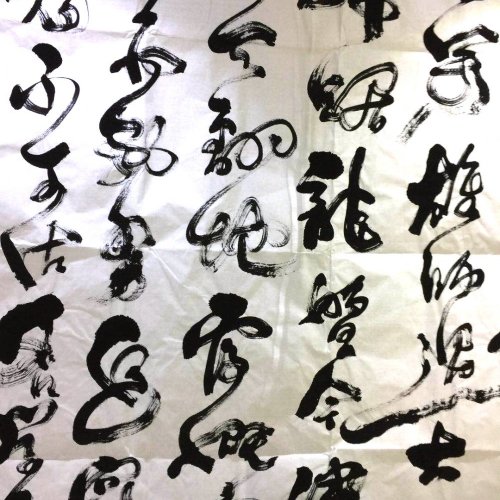 萬雄師過大
踞龍盤今勝
天翻地覆慨
將剩勇追窮
不可沽名學